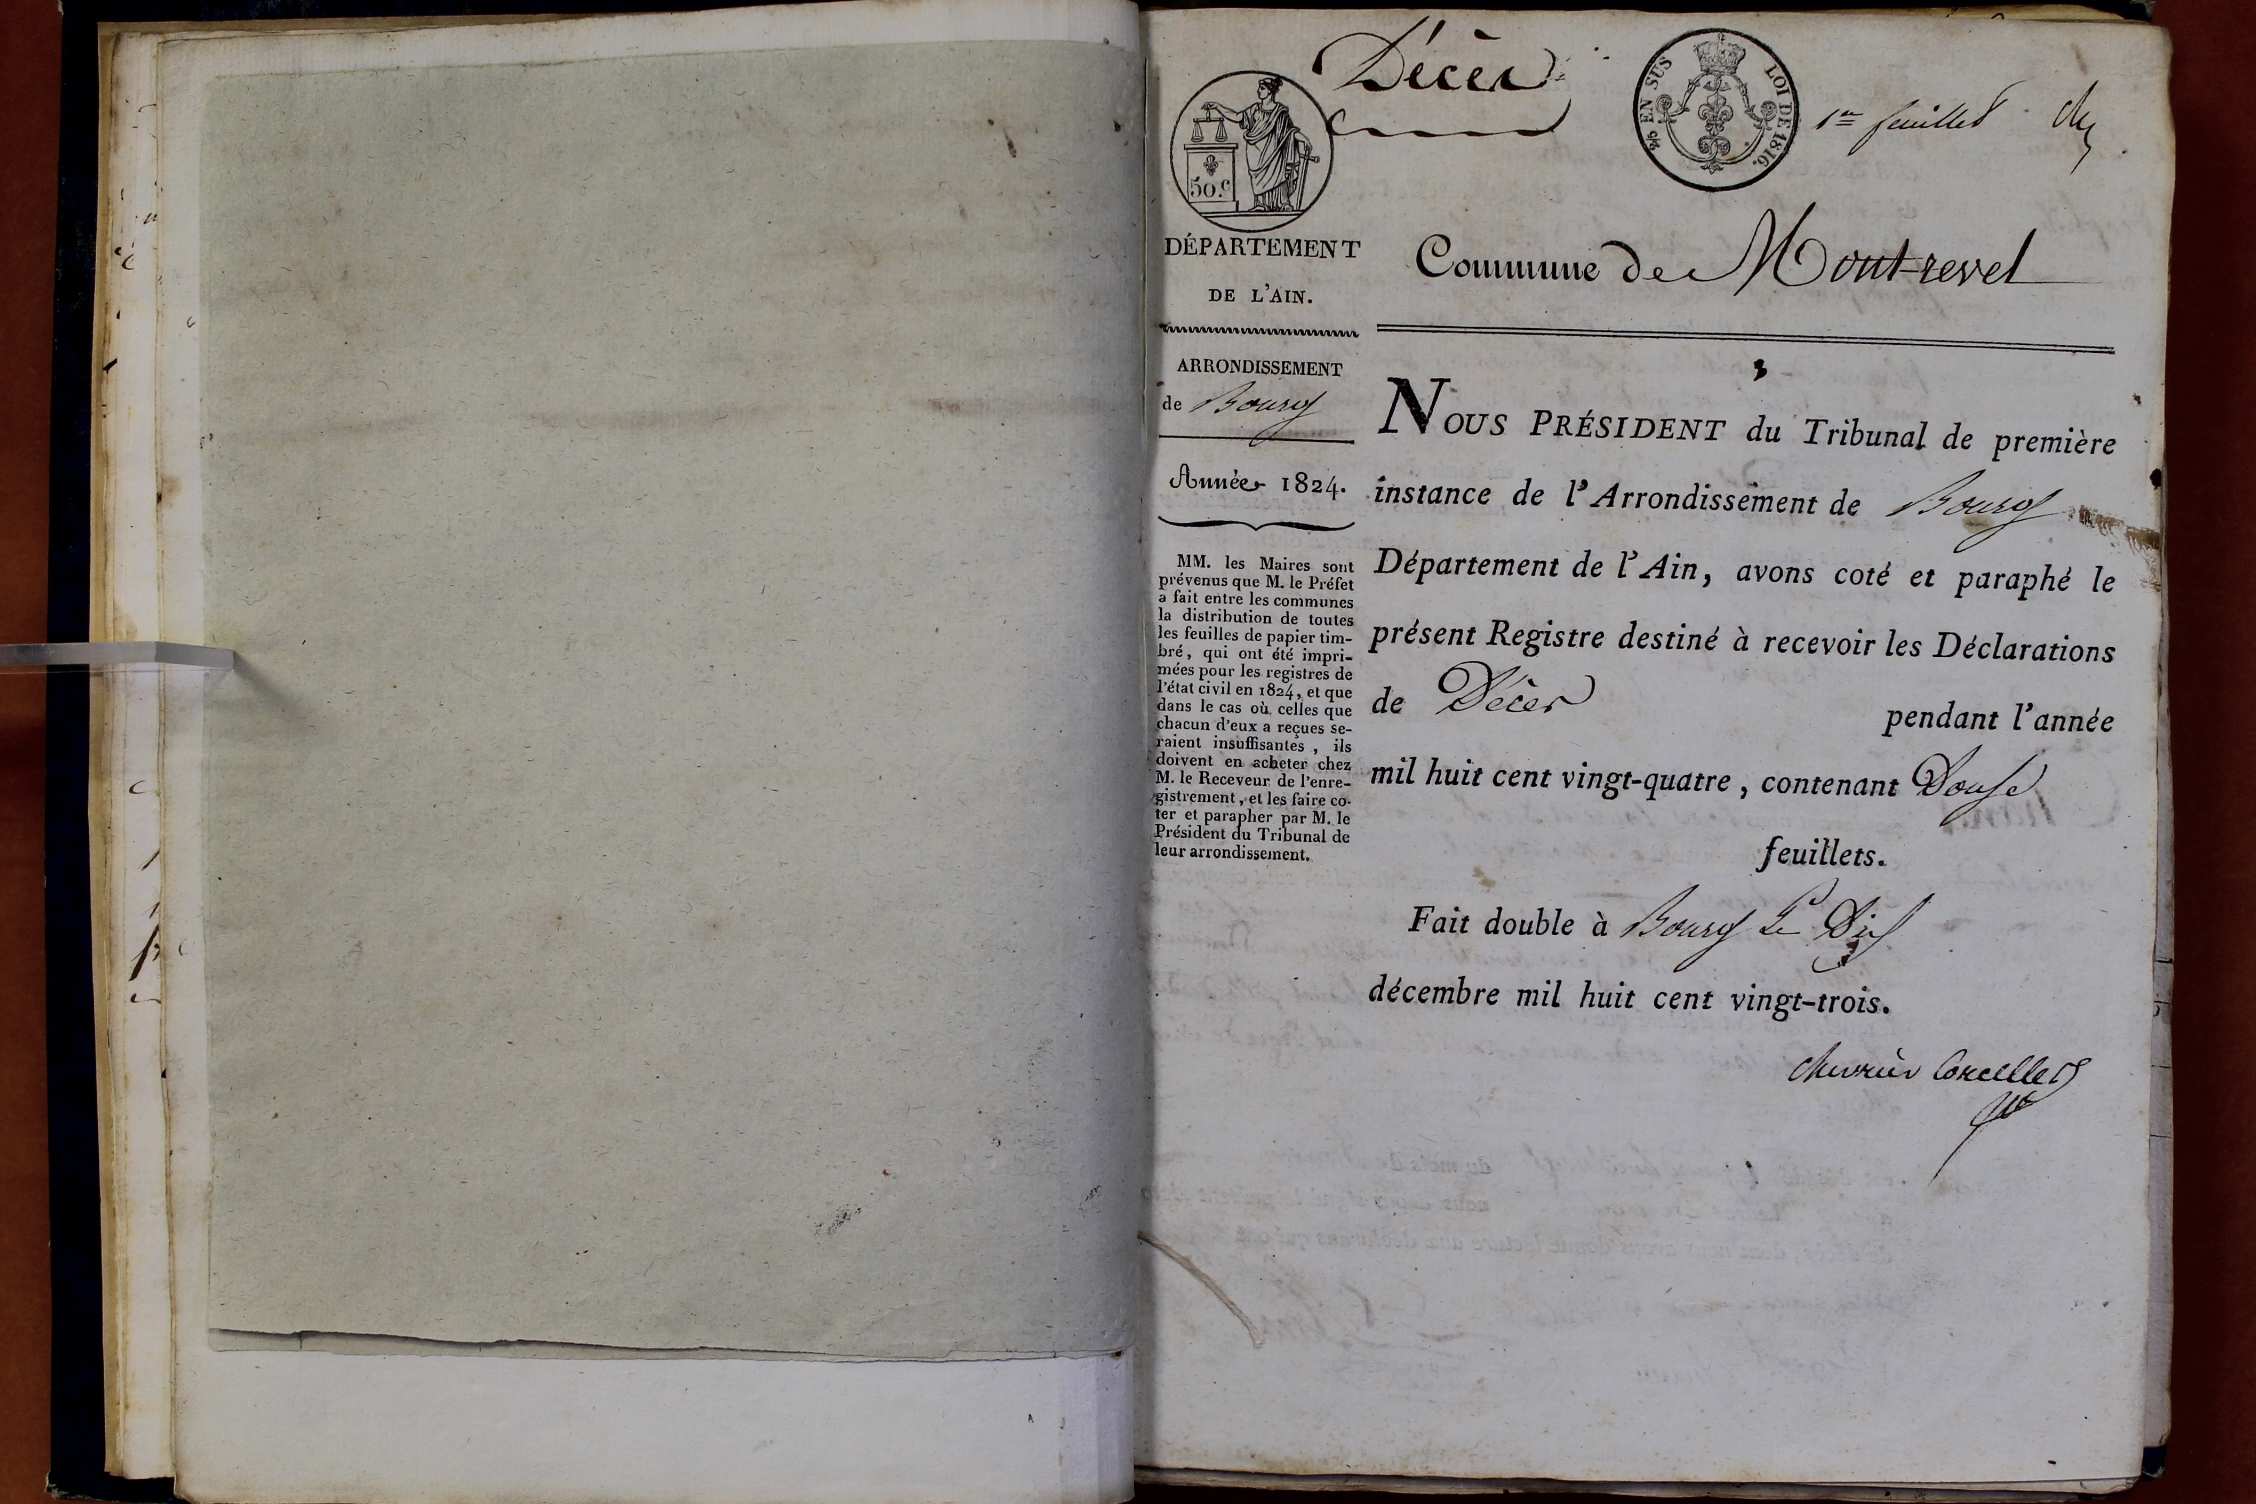 Décès
50.c
EN SUS
LOI DE 1816.
1er feuillet
DÉPARTEMENT
DE L'AIN.
Commune de Montrevel
ARRONDISSEMENT
de Bourg
Année 1824.
MM. les Maires sont
prévenus que M. le Préfet
a fait entre les communes
la distribution de toutes
les feuilles de papier tim-
bré, qui ont été impri-
mées pour les registres de
l'état civil en 1824, et que
dans le cas où celles que
chacun d'eux a reçues se-
raient insuffisantes , ils
doivent en acheter chez
M. le Receveur de l'enre-
gistrement, et les faire co-
ter et parapher par M. le
Président du Tribunal de
leur arrondissement.
NOUS PRÉSIDENT du Tribunal de première
instance de l'Arrondissement de Bourg
Département de l'Ain, avons coté et paraphé le
présent Registre destiné à recevoir les Déclarations
de Décès pendant l'année
mil huit cent vingt-quatre , contenant Douse
feuillets.
Fait double à Bourg Le Dix
décembre mil huit cent vingt-trois.
Chevrier Corcelles